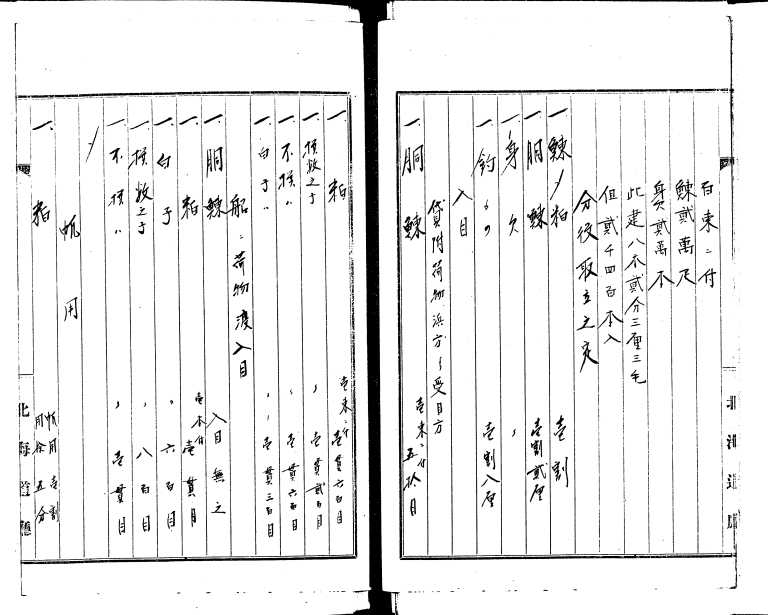 百束ニ付
鰊貳萬尺
身欠貳萬本
此建八本貳分三厘三毛
但貳千四百本入
分役取立之定
一 鰊〆粕 壱割
一 胴鰊 壱割貳厘
一 身欠 〃
一 鈞〃 壱割八厘
入目
貸附荷物浜方〃受目方
一 胴鰊 壱束ニ付 五拾目
一 粕 壱束ニ付 壱貫六百目
一 撰数之子 〃 壱貫貳百目
一 不撰〃 〃 壱貫六百目
一 白子〃 〃 壱貫三百目
船ニ荷物渡入目
一 胴鰊 入目無之
一 粕 壱本ニ付 壱貫目
一 白子 〃 六百目
一 撰数之子 〃 八百目
一 不撰〃 〃 壱貫目
〆
帆用
一 粕 帆用壱割 用余五分
北海道廳